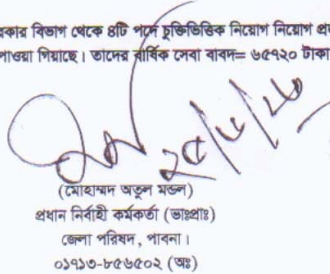 রকার বিভাগ থেকে ৪টি পদে চুক্তিভিত্তিক নিয়োগ নিয়োগ প্র
পাওয়া গিয়াছে। তাদের বার্ষিক সেবা বাবদ= ৬৫৭২০ টাকা
(মোহাম্মদ অতুল মন্ডল)
প্রধান নির্বাহী কর্মকর্তা (ভাঃপ্রাঃ)
জেলা পরিষদ, পাবনা।
০১৭১৩-৮৫৬৫০২ (অঃ)